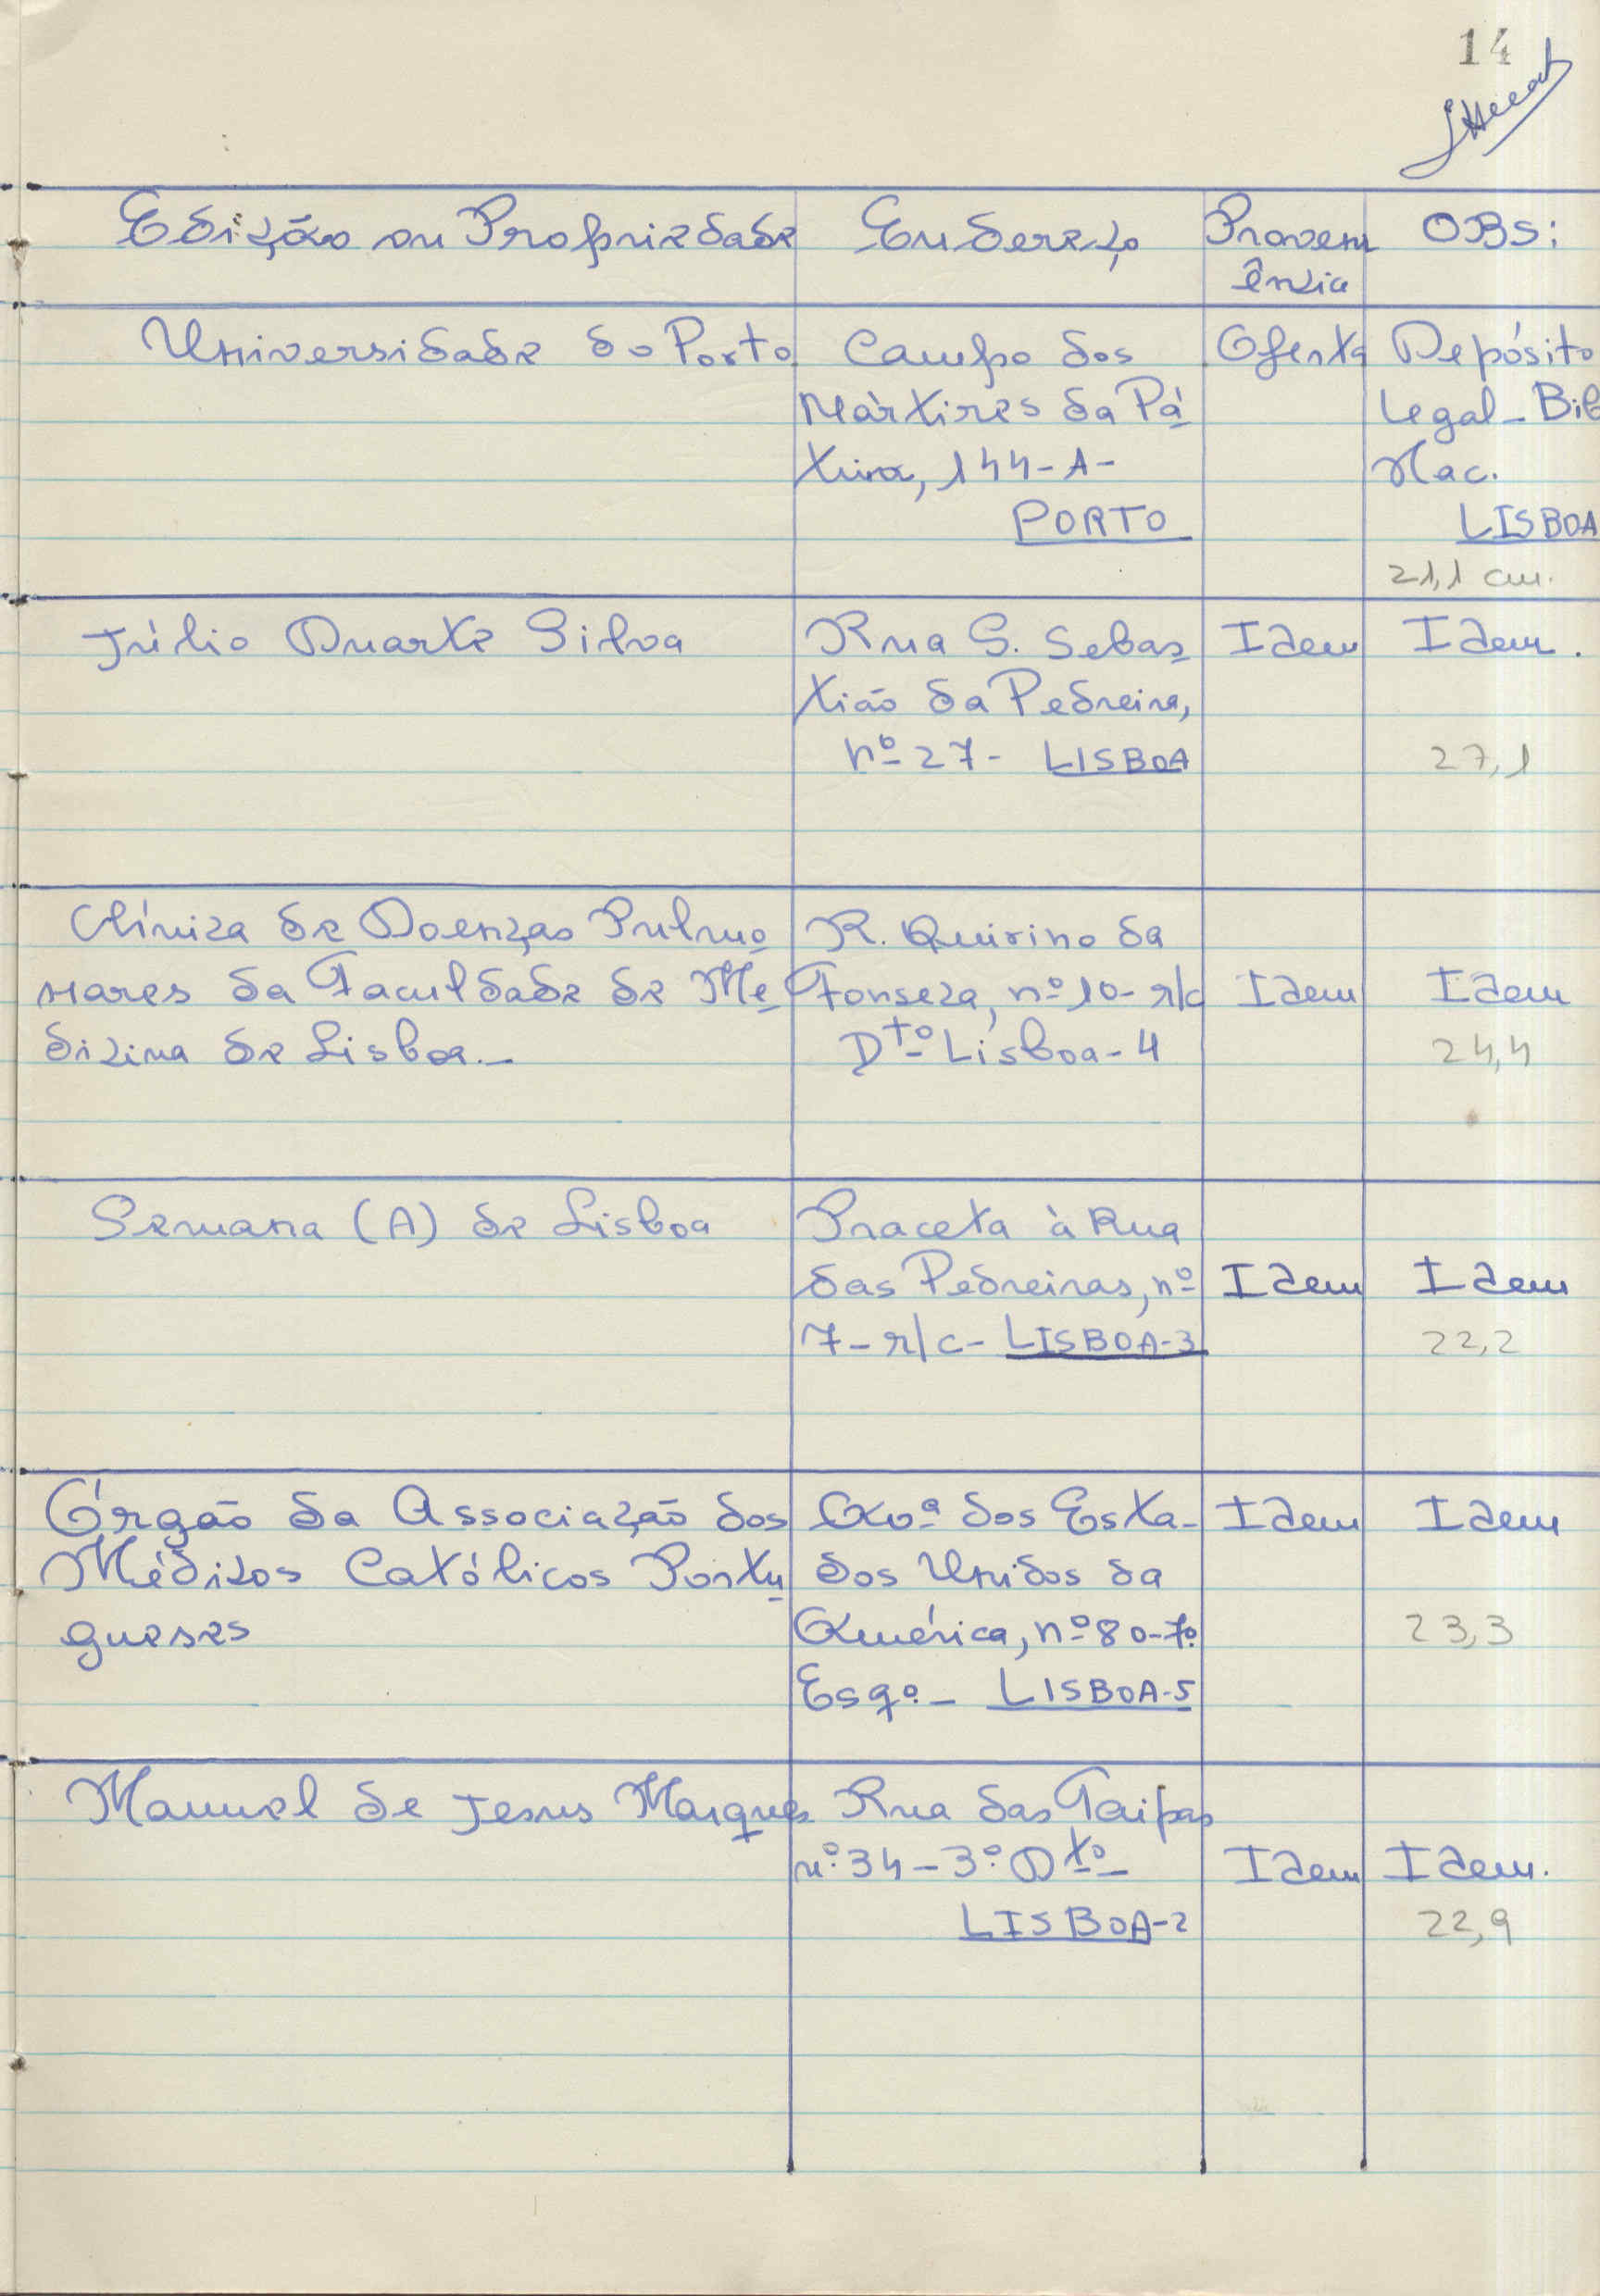 14
Edição ou Propriedade Endereço Provem OBS:
ência
Universidade do Porto Campo dos Oferta Depósito
Mártires da Pá Legal - Bib
tria, 144-A- Nac.
PORTO LISBOA
21,1 cm.
Júlio Duarte Silva Rua S. Sebas Idem Idem.
tião da Pedreira,
nº 27- LISBOA 27,1
Clínica de Doenças Pulmo R. Quirino da
nares da Faculdade de Me Fonseca, nº 10- r/c Idem Idem
dicina de Lisboa.- Dtº Lisboa-4 24,4
Semana (A) de Lisboa Praceta à Rua
das Pedreiras, nº Idem Idem
7-r/c- LISBOA-3 22,2
Órgão da Associação dos Avª dos Esta- Idem Idem
Médicos Católicos Portu dos Unidos da
gueses América, nº 80-7º 23,3
Esqº- LISBOA-5
Manuel de Jesus Marques Rua das Taipas
nº 34-3º Dtº- Idem Idem.
LISBOA-2 22,9